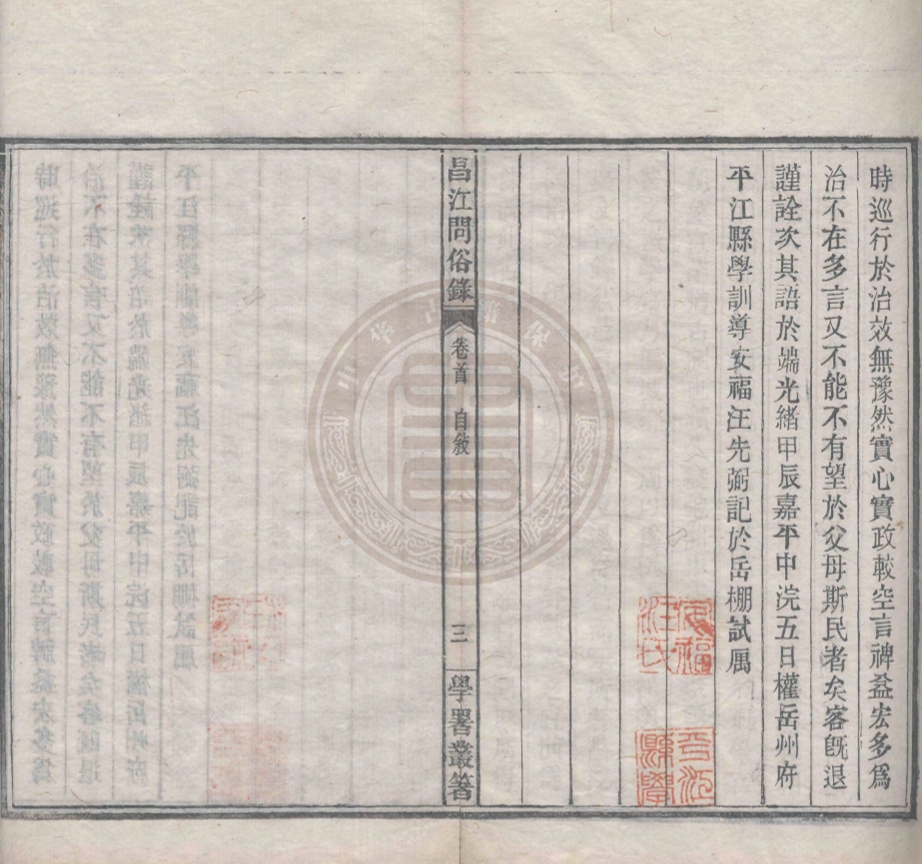 時巡行於治效無豫然實心實政較空言裨益宏多爲
治不在多言又不能不有望於父母斯民者矣客既退
謹詮次其語於端光緒甲辰嘉平中浣五日權岳州府
平江縣學訓導安福汪先弼記於岳棚試寓
安福
汪氏
平江
縣學
昌江問俗錄
卷首
自敘
三
學署叢著